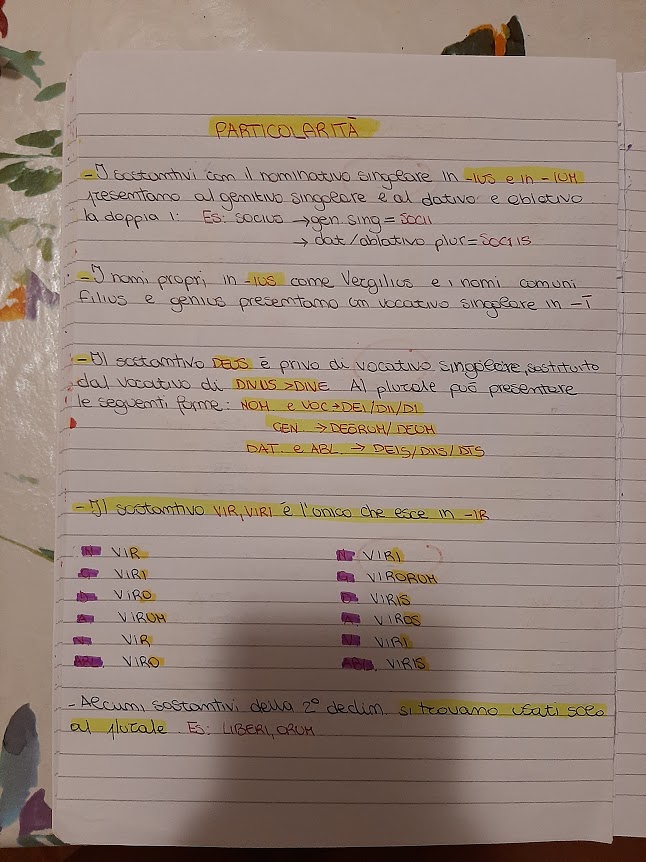 PARTICOLARITÀ
- I sostantivi con il nominativo singolare in -IUS e in -IUM
presentano al genitivo singolare e al dativo e ablativo
la doppia I: ES: SOCIUS → gen. sing = SOCII
→ dat/ablativo plur = SOCIIS
- I nomi propri in -IUS come Vergilius e i nomi comuni
filius e genius presentano un vocativo singolare in -I
- Il sostantivo DEUS è privo di vocativo singolare, sostituito
dal vocativo di DIVUS > DIVE. Al plurale può presentare
le seguenti forme: NOM. e VOC → DEI/DII/DI
GEN → DEORUM/DEUM
DAT. e ABL → DEIS/DIIS/DIS
- Il sostantivo VIR, VIRI è l'unico che esce in -IR
N VIR N. VIRI
G VIRI G. VIRORUM
D VIRO D VIRIS
A VIRUM A VIROS
V VIR V VIRI
ABL VIRO ABL. VIRIS
- Alcuni sostantivi della 2° declin. si trovano usati solo
al plurale. ES: LIBERI, ORUM